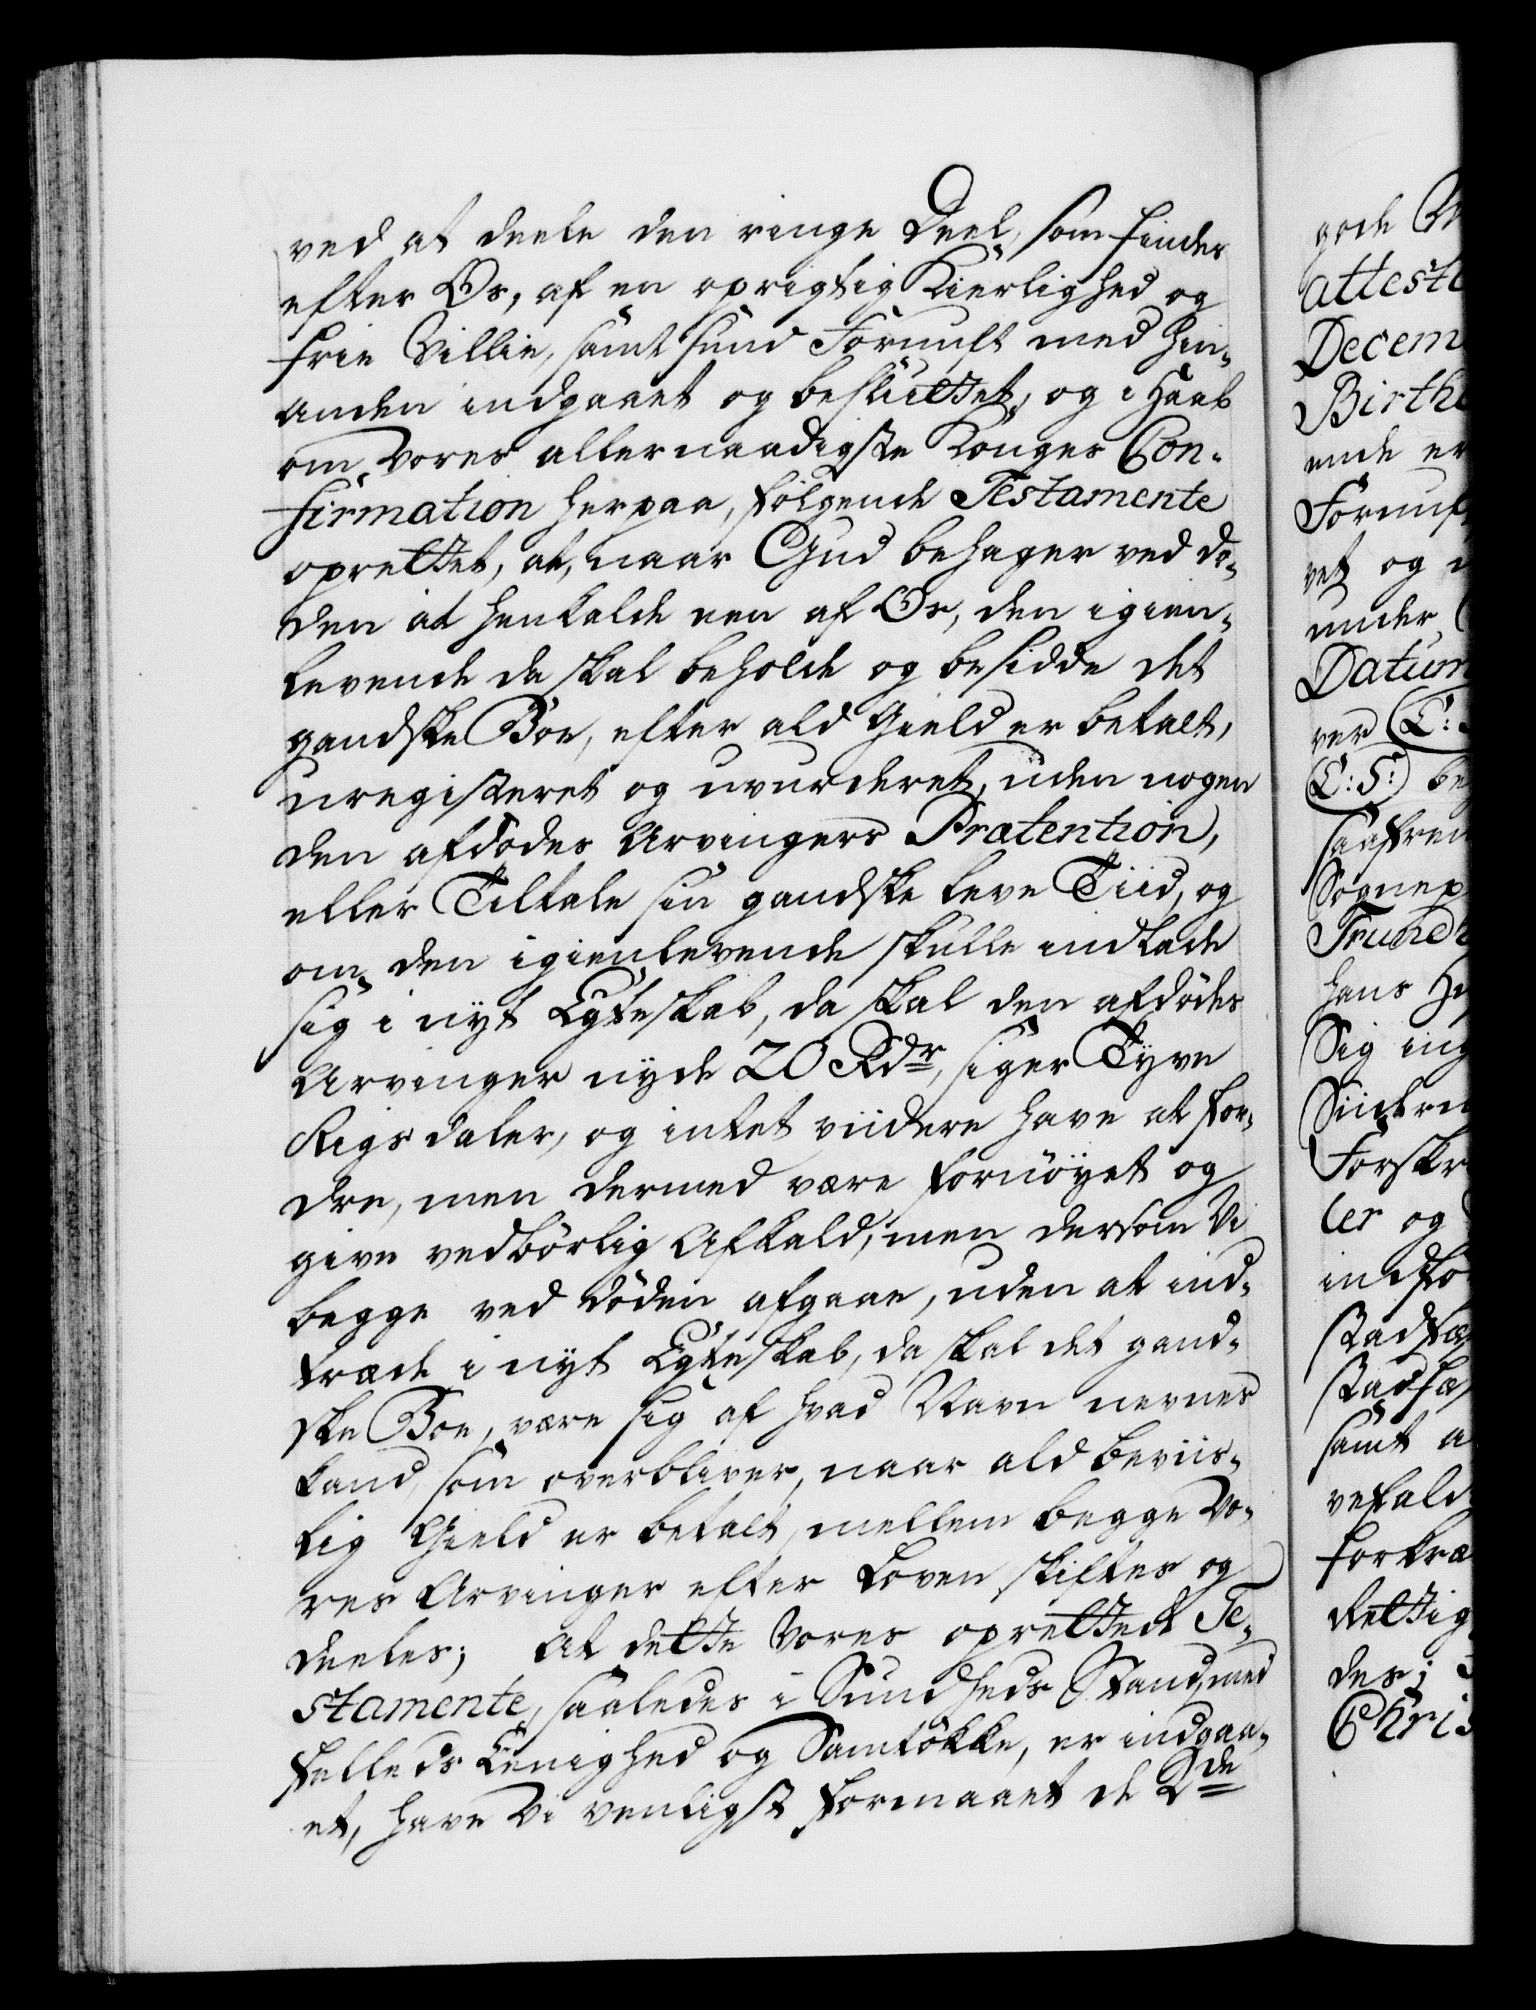 ved at deele den ringe Deel, som findes
efter Os, af en oprigtig Kierlighed og
frie Villie, samt sund Fornuft med hin-
anden indgaaet og besluttet, og i Haab
om Vores allernaadigste Konges Con-
firmation herpaa, følgende Testamente
oprettet, at, naar Gud behager ved Dø-
den at henkalde een af Os, den igien-
levende da skal beholde og besidde det
gandske Boe, efter ald Gield er betalt,
uregisteret og uvurderet, uden nogen
den afdødes Arvingers Prætention,
eller Tiltale sin gandske leve Tiid, og
om den igienlevende skulle indlade
sig i nyt Egteskab, da skal den afdødes
Arvinger nyde 20 Rdr, siger Tyve
Rigsdaler, og intet viidere have at for-
dre, men dermed være fornøyet og
give vedbørlig Afkald, men dersom Vi
begge ved Døden afgaae, uden at ind-
træde i nyt Egteskab, da skal det gand-
ske Boe, være sig af hvad Navn nevnes
kand, som overbliver, naar ald beviis-
lig Gield er betalt, mellem begge Vo-
res Arvinger efter Loven skiftes og
deeles; At dette Vores oprettede Te-
stamente, saaledes i Sundheds Stand, med
felleds Eenighed og Samtøkke, er indgaa-
et, have Vi venligst formaaet de 2de
gode
attest
Decem
Birthe
ende er
Fornuf
vet og
under
Datum
ver (L:
(L:S:) be
saafrem
Sognep
Trund
hans
Sig ing
Forskr
ler og
indfø
Stadfæ
Stadfæ
samt a
befald
dettig
des;
Chris